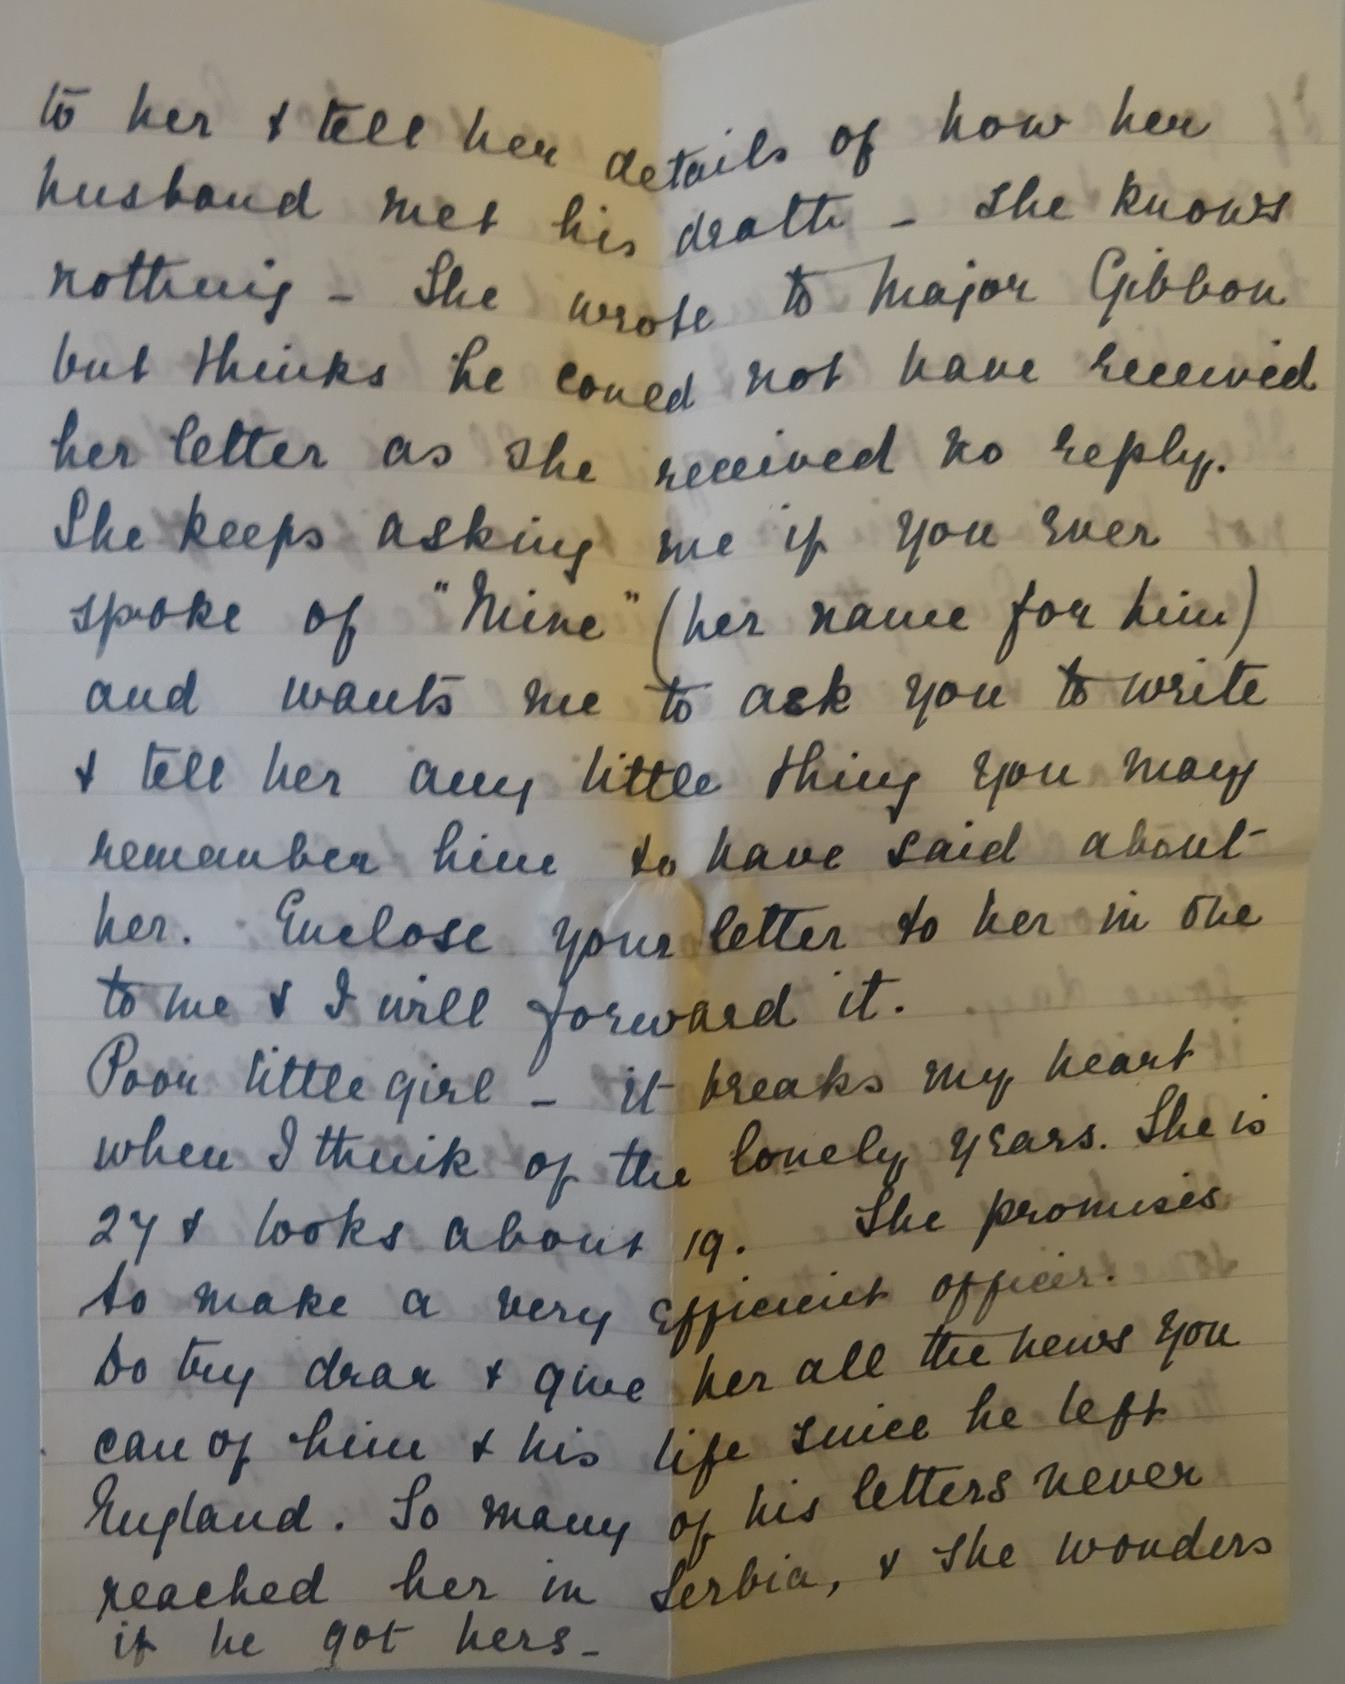 to her & tell her details of how her
husband met his death - She knows
nothing - She wrote to Major Gibbon
but thinks he could not have received
her letter as she received no reply.
She keeps asking me if you ever
spoke of "Mine" (her name for him)
and wants me to ask you to write
& tell her any little thing you may
remember him to have said about
her. Enclose your letter to her in one
to me & I will forward it.
Poor little girl - it breaks my heart
when I think of the lonely years. She is
27 & looks about 19. She promises
to make a very efficient officer.
Do try dear & give her all the news you
can of him & his life since he left
England. So many of his letters never
reached her in Serbia, & she wonders
if he got hers -